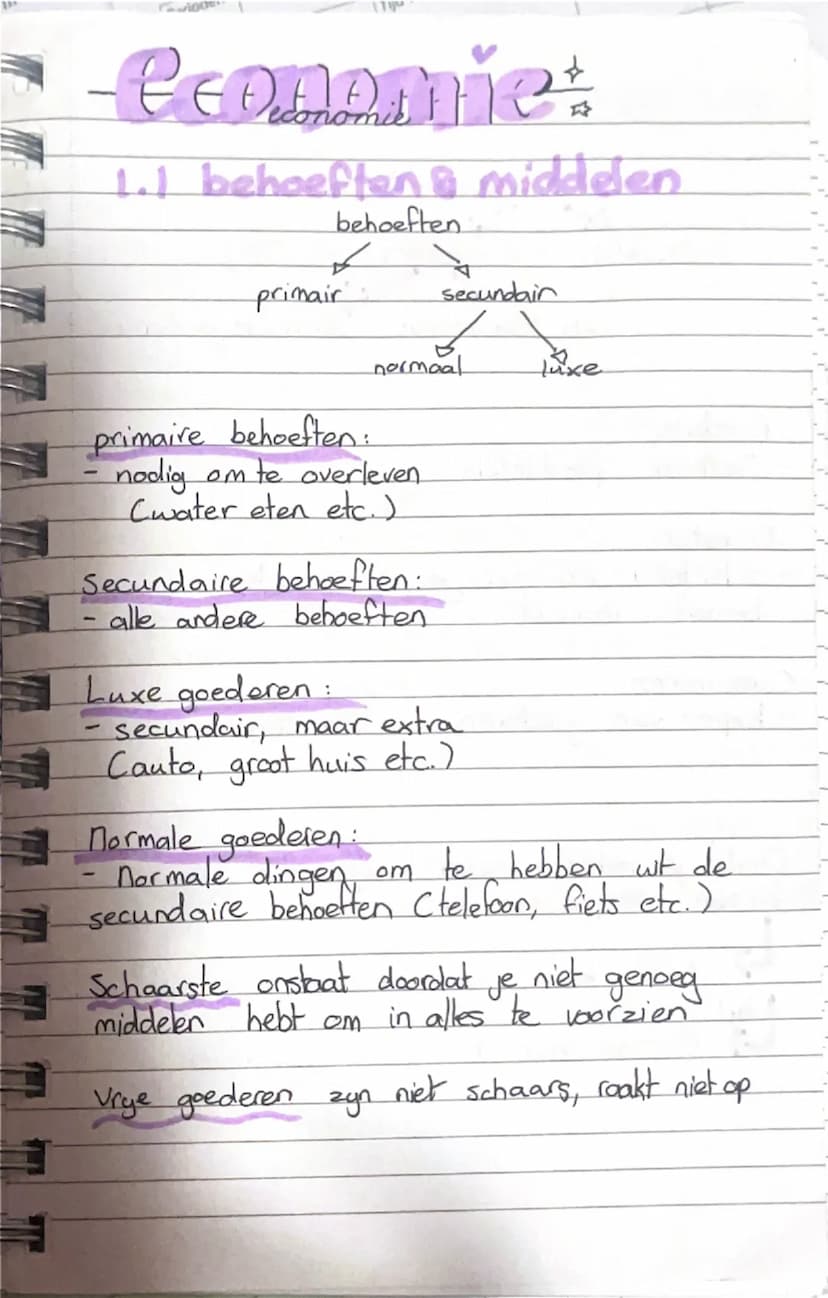 economie
economie
1.1 behoeften & middelen
behoeften
primair secundair
normaal luxe
primaire behoeften:
- nodig om te overleven
(water eten etc.)
Secundaire behoeften:
- alle andere behoeften
Luxe goederen:
- secundair, maar extra
(auto, groot huis etc.)
Normale goederen:
- normale dingen om te hebben uit de
secundaire behoeften (telefoon, fiets etc.)
Schaarste onstaat doordat je niet genoeg
middelen hebt om in alles te voorzien
Vrye goederen zyn niet schaars, raakt niet op